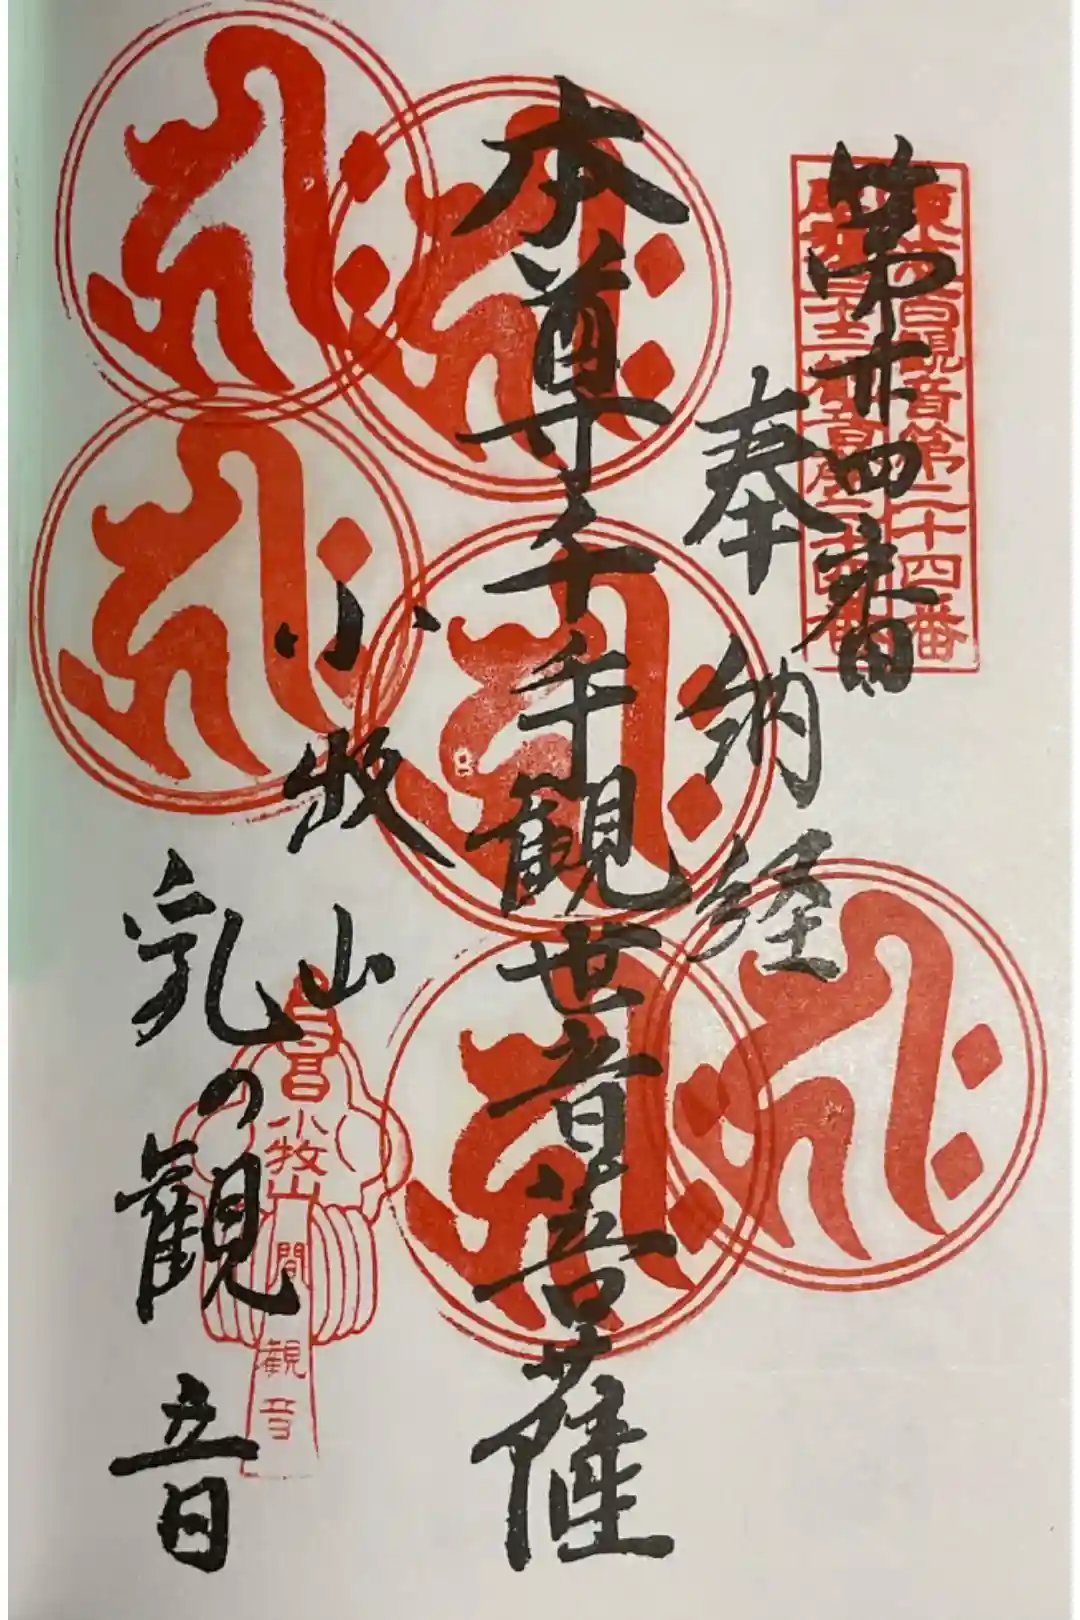 第廿四番
奉納経
本尊千手観世音菩薩
小牧山
乳の観音
東海百観音第二十四番
小牧山
間
観音